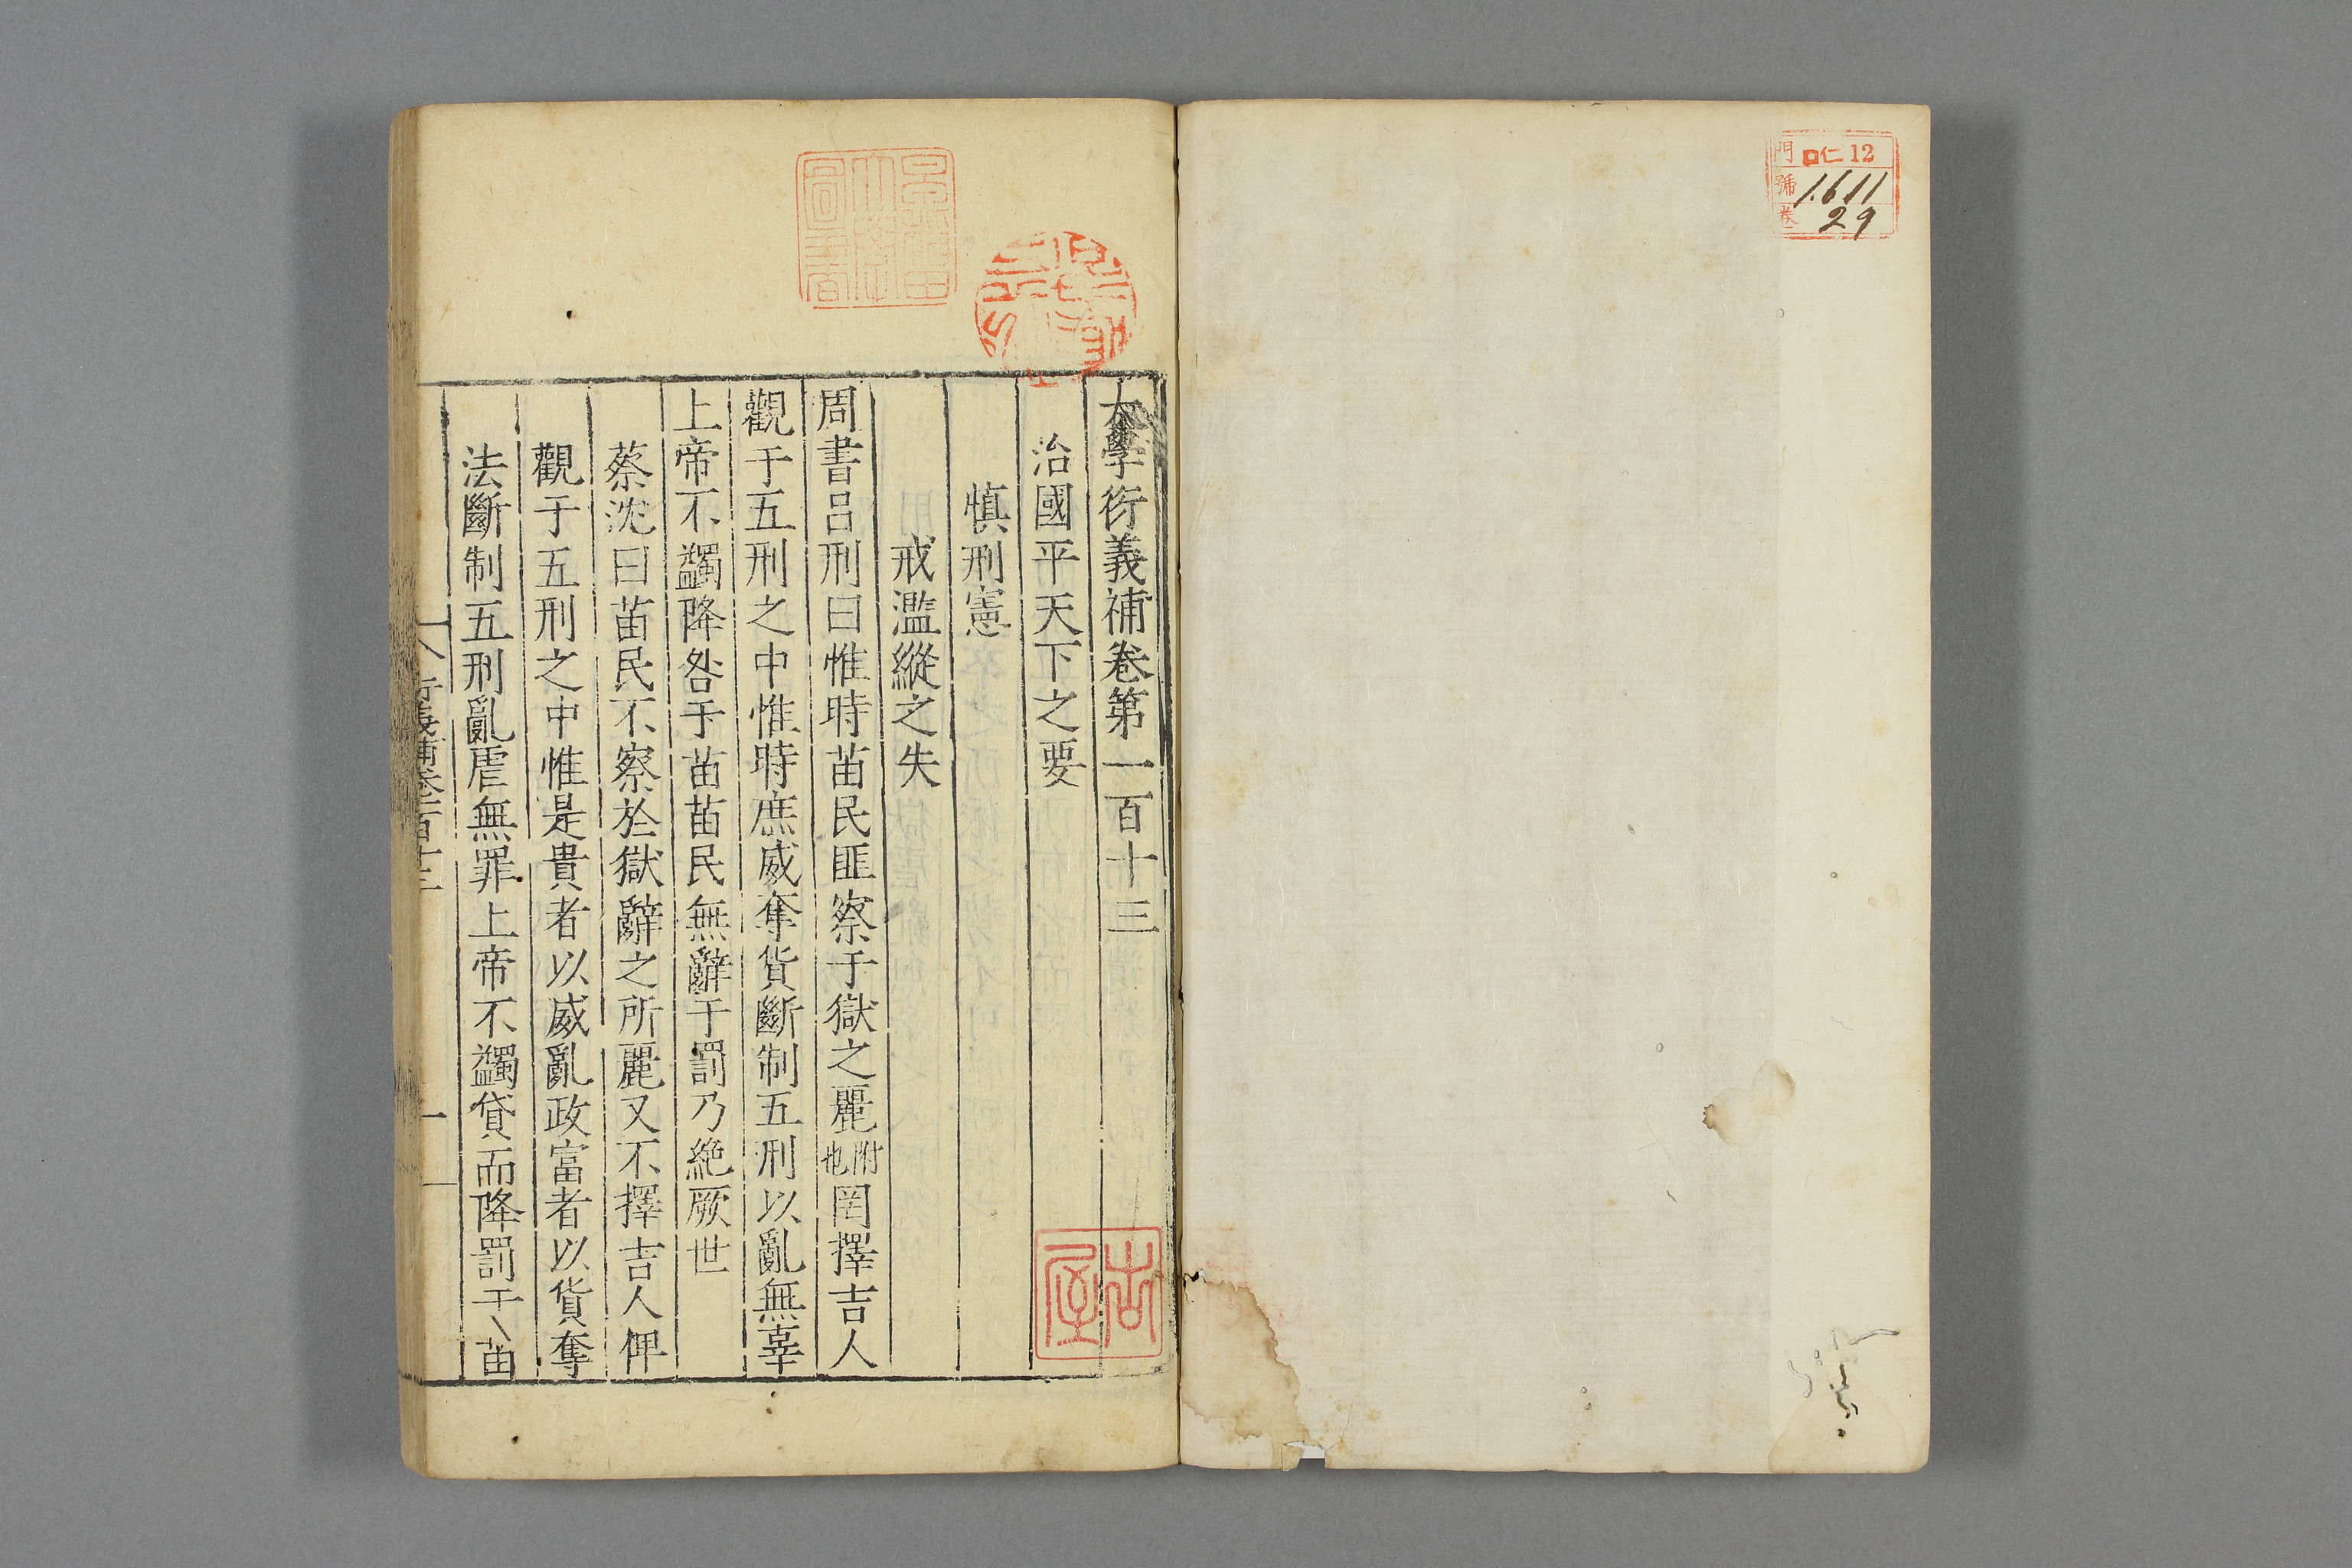 門 ロ仁 12
號 1611
卷 29
大學衍義補卷第一百十三
治國平天下之要
慎刑憲
戒濫縱之失
周書呂刑曰惟時苗民匪察于獄之麗附也罔擇吉人
觀于五刑之中惟時庶威奪貨斷制五刑以亂無辜
上帝不蠲降咎于苗苗民無辭于罰乃絶厥世
蔡沈曰苗民不察於獄辭之所麗又不擇吉人俾
觀于五刑之中惟是貴者以威亂政富者以貨奪
法斷制五刑亂虐無罪上帝不蠲貸而降罰于苗
衍義補卷一百十三
一